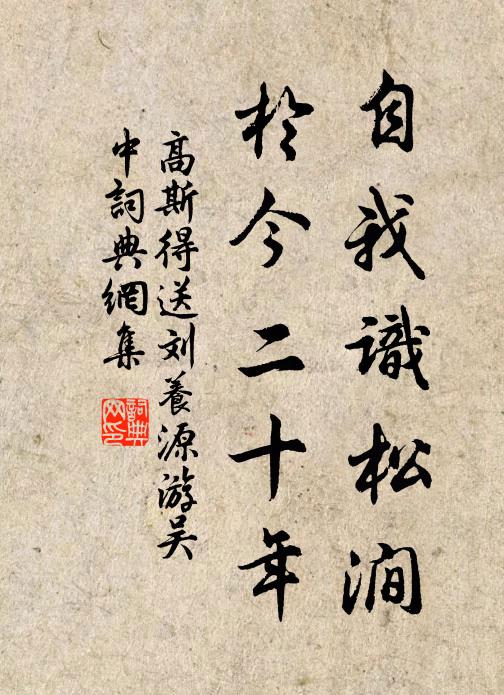 自我識松澗
於今二十年
高斯得送刘養源游吴
中詞典網集
詞典网印